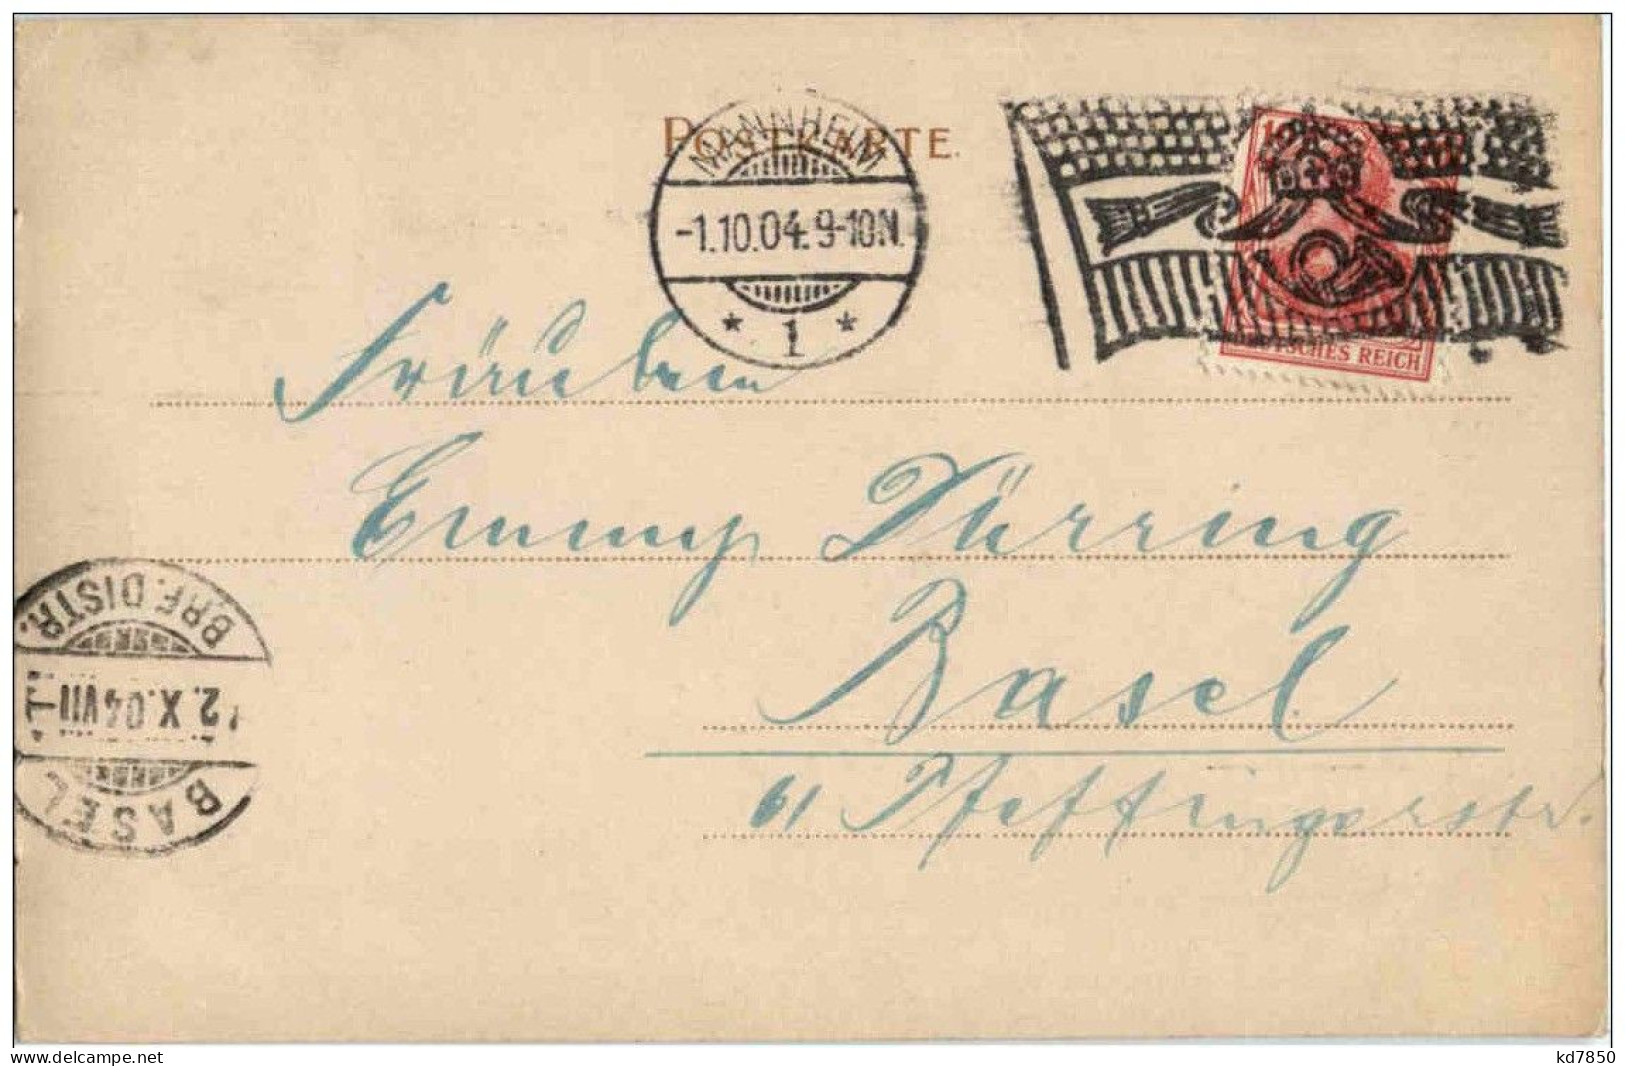 POSTKARTE.
MANNHEIM
-1.10.04. 9-10N.
* 1 *
DEUTSCHES REICH
Fräulein
Emmy Dürring
Basel
61 Pfeffingerstr.
BRF. DISTR.
2.X.04 VII
BASEL
delcampe.net
kd7850